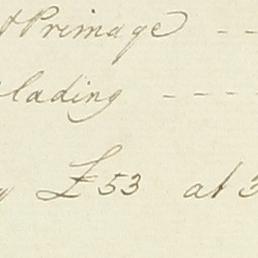 & Primage - -
lading - - -
£53 at 3